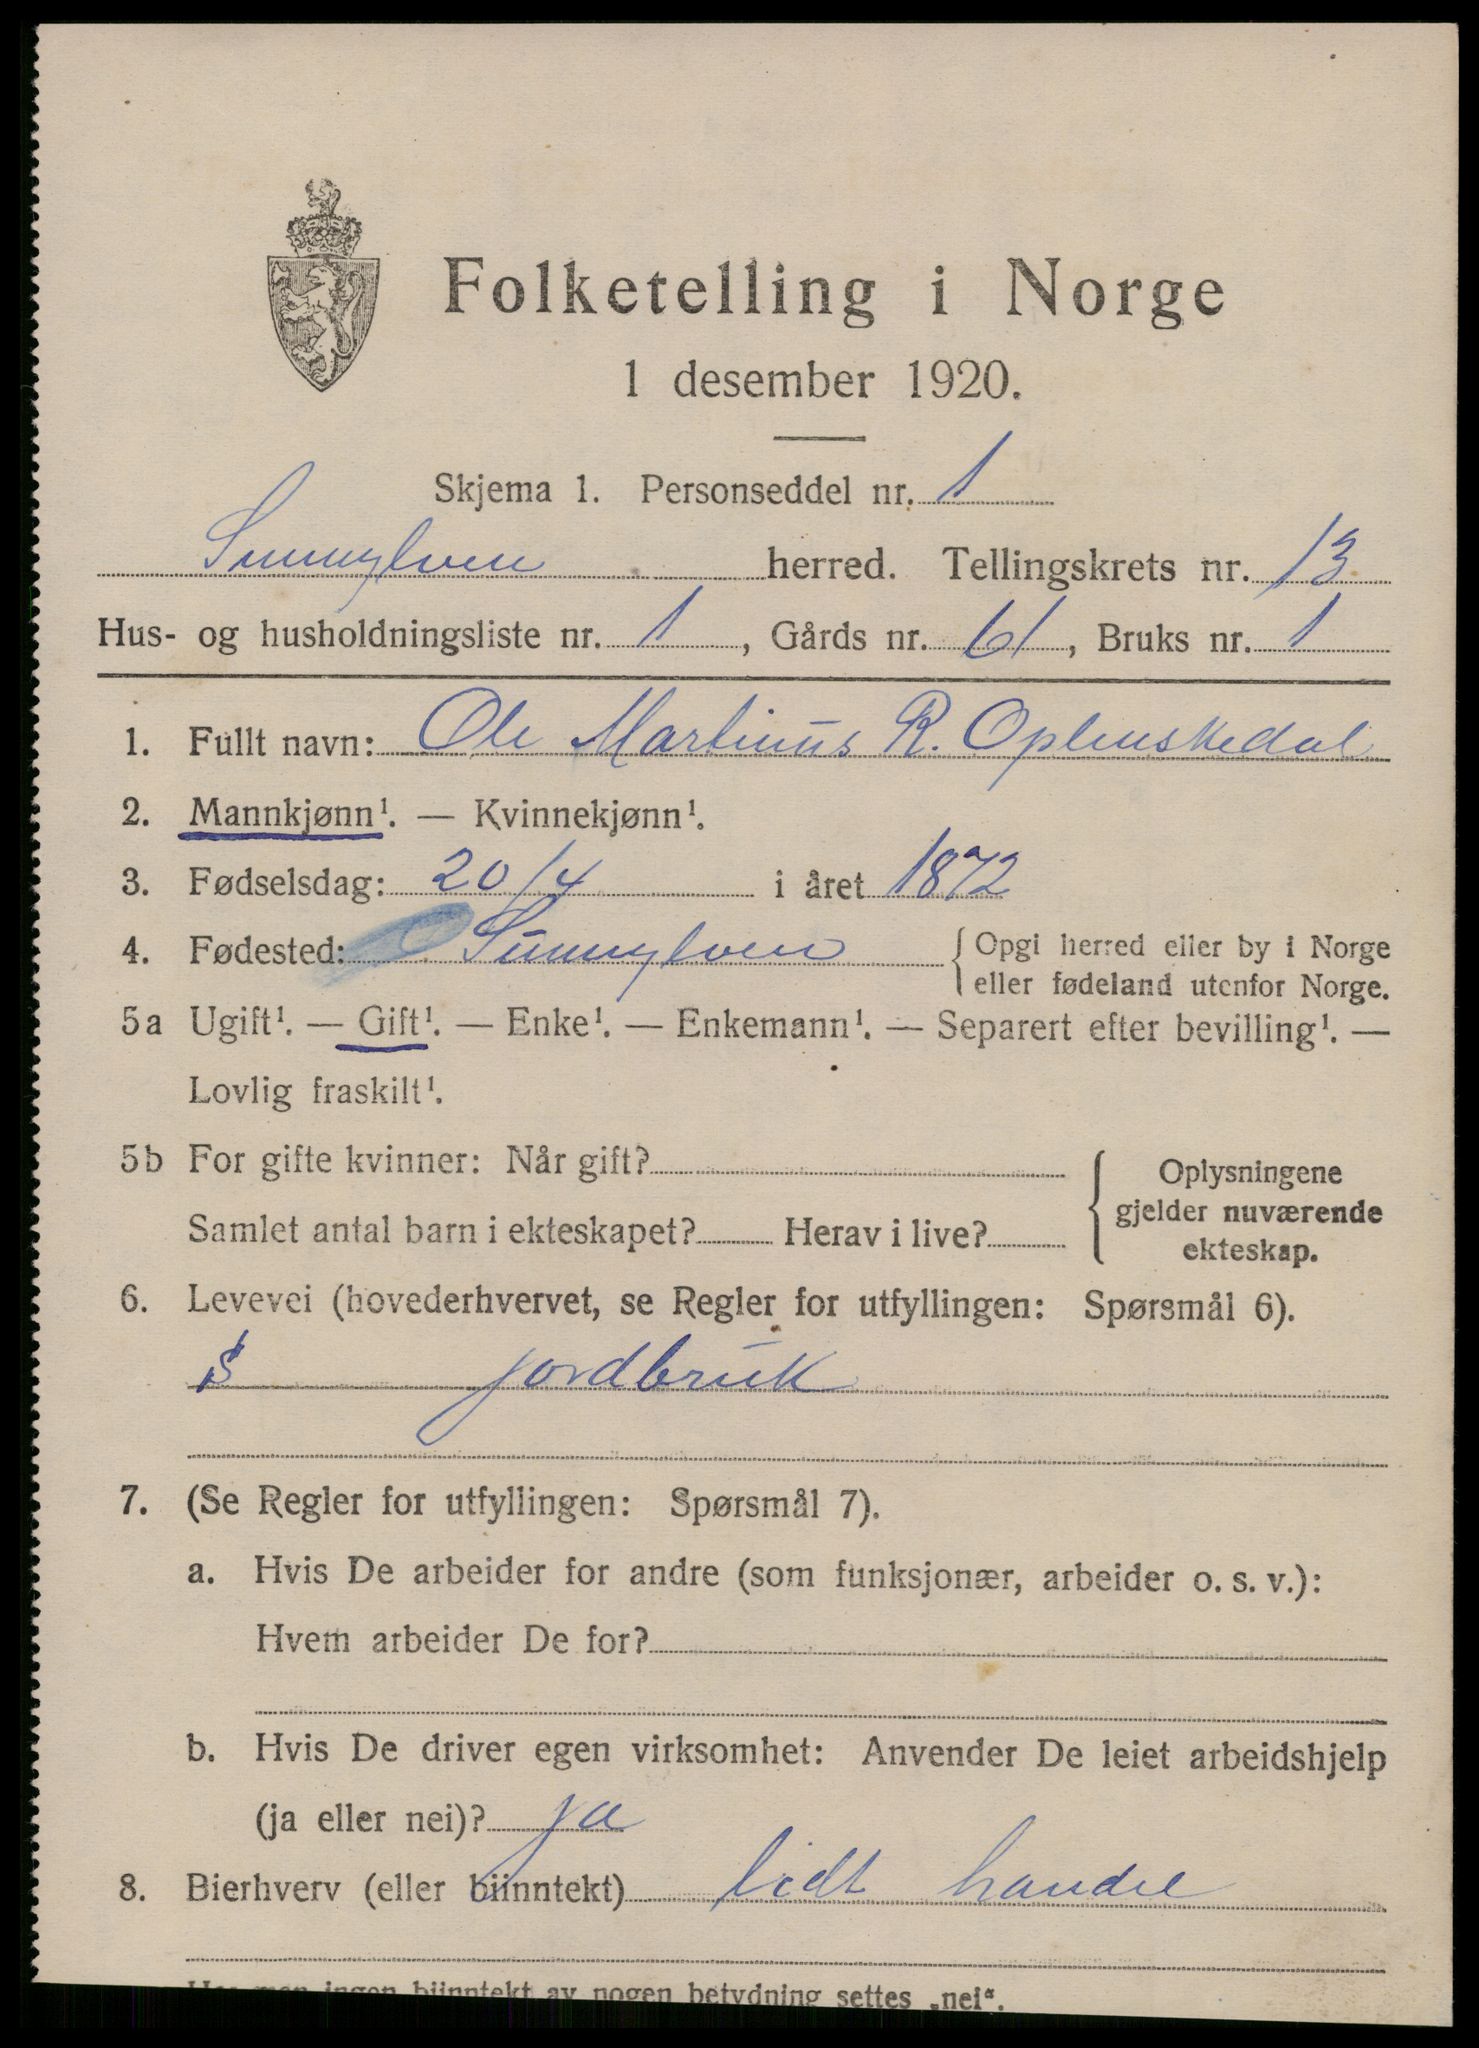 Folketelling i Norge
1 desember 1920.
Skjema 1. Personseddel nr. 1
Sunnylven herred. Tellingskrets nr. 13
Hus- og husholdningsliste nr. 1, Gårds nr. 61, Bruks nr. 1
1. Fullt navn: Ole Martinus R. Oplenskedal
2. Mannkjønn¹. — Kvinnekjønn¹.
3. Fødselsdag: 20/4 i året 1872
4. Fødested: Sunnylven { Opgi herred eller by i Norge
eller fødeland utenfor Norge.
5a Ugift¹. — Gift¹. — Enke¹. — Enkemann¹. — Separert efter bevilling¹. —
Lovlig fraskilt¹.
5b For gifte kvinner: Når gift?
Samlet antal barn i ekteskapet? Herav i live?
{ Oplysningene
gjelder nuværende
ekteskap.
6. Levevei (hovederhvervet, se Regler for utfyllingen: Spørsmål 6).
S jordbruk
7. (Se Regler for utfyllingen: Spørsmål 7).
a. Hvis De arbeider for andre (som funksjonær, arbeider o. s. v.):
Hvem arbeider De for?
b. Hvis De driver egen virksomhet: Anvender De leiet arbeidshjelp
(ja eller nei)? ja
8. Bierhverv (eller biinntekt) lidt handel
Har man ingen biinntekt av nogen betydning settes „nei“.